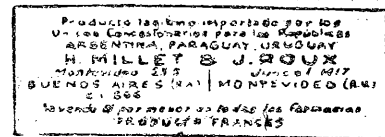 Producto legítimo importado por los
Unicos Concesionarios para las Repúblicas
ARGENTINA, PARAGUAY, URUGUAY
H. MILLET & J. ROUX
Montevideo Juncal
BUENOS AIRES (R.A.) MONTEVIDEO (R.U.)
al por menor en todas las Farmacias
PRODUCTO FRANCÉS